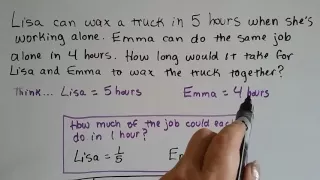 Lisa can wax a truck in 5 hours when she's
working alone. Emma can do the same job
alone in 4 hours. How long would it take for
Lisa and Emma to wax the truck together?
Think... Lisa = 5 hours Emma = 4 hours
How much of the job could
do in 1 hour?
Lisa = 1/5